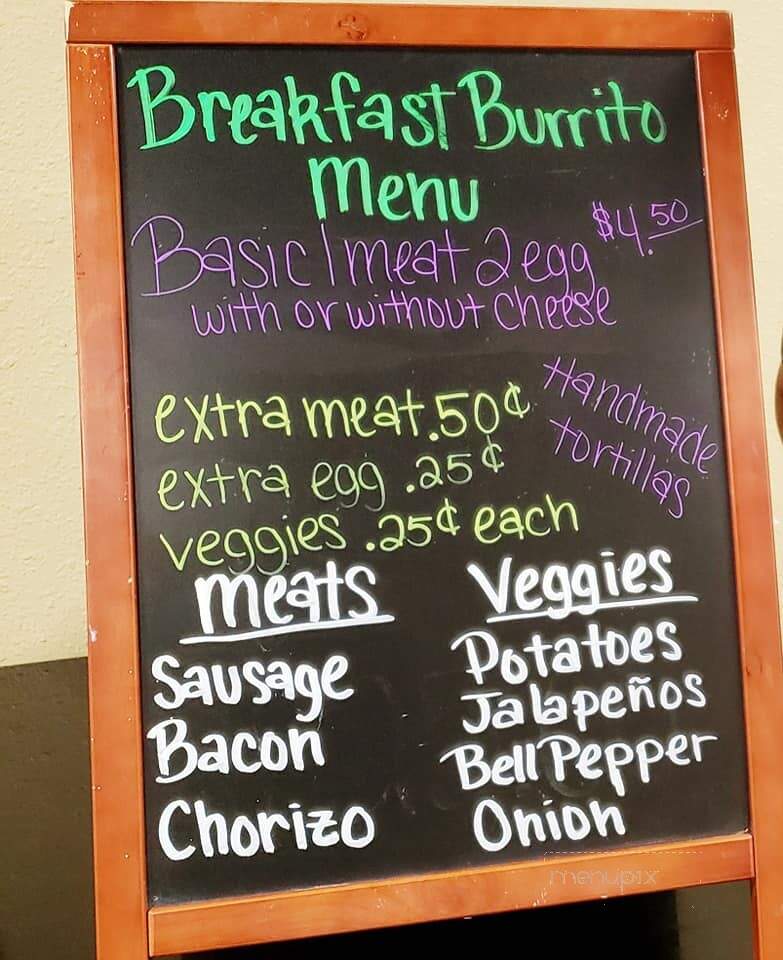 Breakfast Burrito
Menu
Basic 1 meat 2 egg $4.50
with or without cheese
Handmade
tortillas
extra meat .50¢
extra egg .25¢
veggies .25¢ each
meats
Sausage
Bacon
Chorizo
Veggies
Potatoes
Jalapeños
Bell Pepper
Onion
menupix